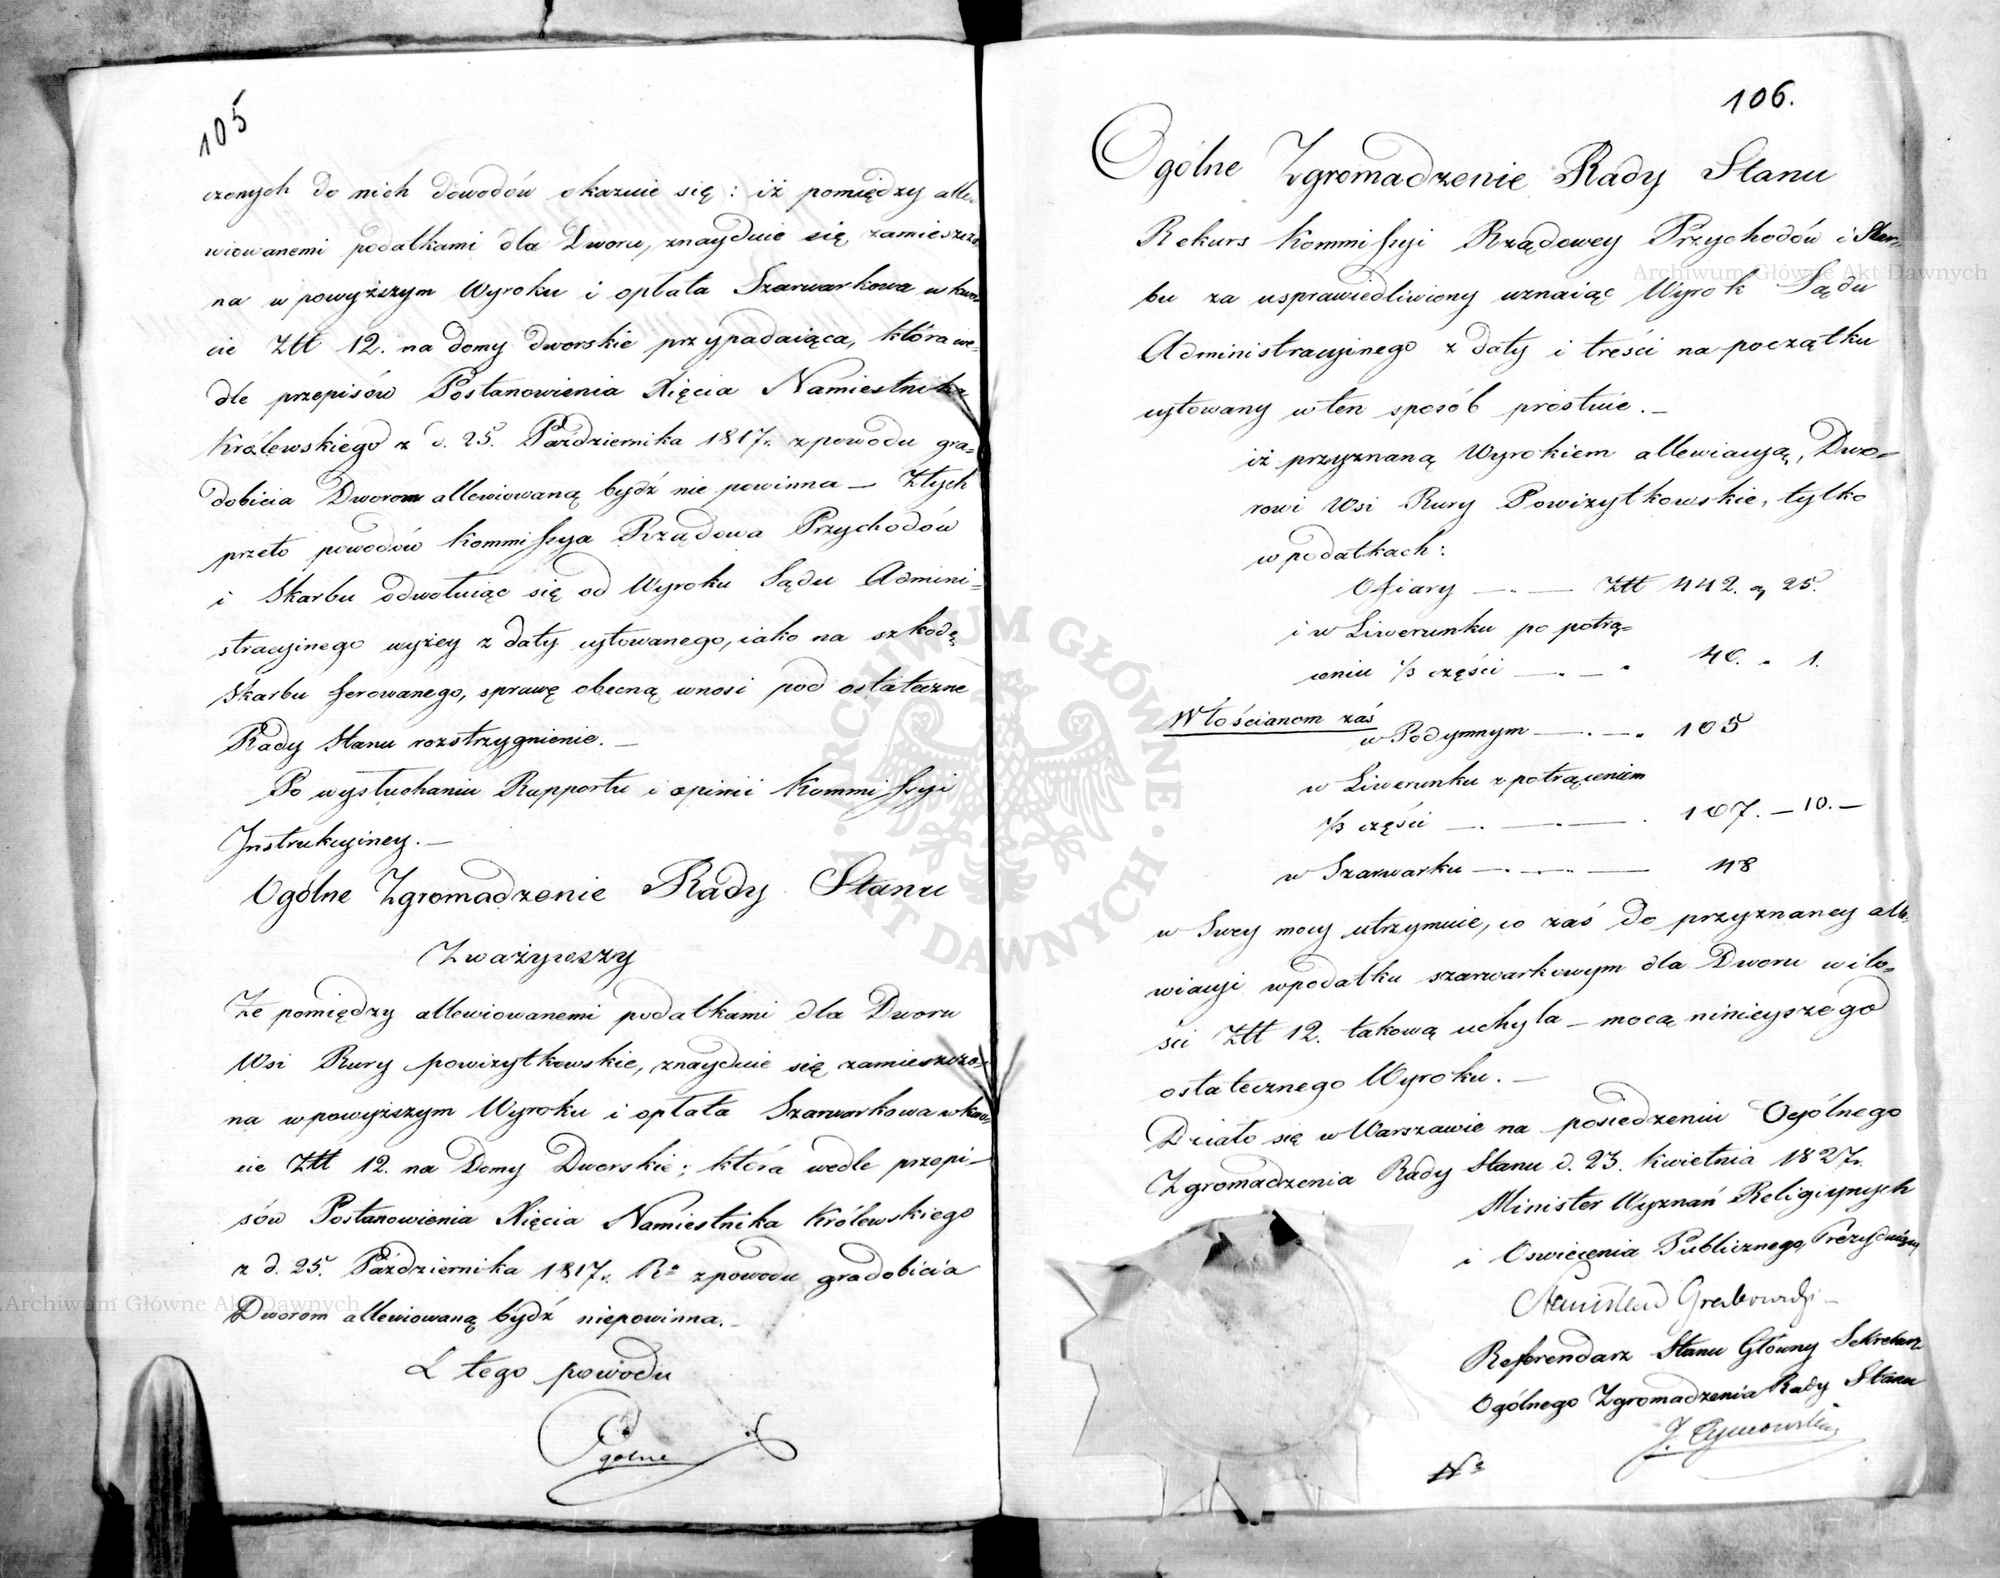 105
czonych do nich dowodów okazuie się: iż pomiędzy alle-
wiowanemi podatkami dla Dworu, znayduie się zamieszczo
na w powyższym Wyroku i opłata Szarwarkowa w kwo
cie Złł 12. na domy dworskie przypadaiąca, która we-
dle przepisów Postanowienia Xięcia Namiestnika
Królewskiego z d. 25. Października 1817r. z powodu gra-
dobicia Dworom allewiowaną bydź nie powinna — Z tych
przeto powodów Kommissya Rządowa Przychodów
i Skarbu odwołuiąc się od Wyroku Sądu Admini-
stracyinego wyżey z daty cytowanego, iako na szkodę
Skarbu ferowanego, sprawę obecną wnosi pod ostateczne
Rady Stanu rozstrzygnienie. —
Po wysłuchaniu Rapportu i opinii Kommissyi
Instrukcyiney. —
Ogólne Zgromadzenie Rady Stanu
Zważywszy
Że pomiędzy allewiowanemi podatkami dla Dworu
Wsi Rury powizytkowskie, znayduie się zamieszczo-
na w powyższym Wyroku i opłata Szarwarkowa w kwo
cie Złł 12. na Domy Dworskie; która wedle przepi-
sów Postanowienia Xięcia Namiestnika Królewskiego
z d. 25. Października 1817r. z powodu gradobicia
Dworom allewiowaną bydź niepowinna. —
Z tego powodu
Ogólne
106.
Ogólne Zgromadzenie Rady Stanu
Rekurs Kommissyi Rządowey Przychodów i Skar-
bu za usprawiedliwiony uznaiąc Wyrok Sądu
Administracyinego z daty i treści na początku
cytowany w ten sposób prostuie. —
iż przyznaną Wyrokiem allewiacyą, Dwo-
rowi Wsi Rury Powizytkowskie, tylko
w podatkach:
Ofiary — . — Złł 442. gr 25.
i w Liwerunku po potrą-
ceniu 1/3 części — . — " 40. " 1.
Włościanom zaś
w Podymnym — . — . 105
w Liwerunku z potrąceniem
1/3 części — . — . 107. — 10. —
w Szarwarku — . — . — 48
w swey mocy utrzymuie, co zaś do przyznaney alle
wiacyi w podatku szarwarkowym dla Dworu w ilo-
ści Złł 12. takową uchyla — mocą ninieyszego
ostatecznego Wyroku. —
Działo się w Warszawie na posiedzeniu Ogólnego
Zgromadzenia Rady Stanu d. 23. Kwietnia 1827r.
Minister Wyznań Religiynych
i Oswiecenia Publicznego, Prezyduiący
Stanisław Grabowski —
Referendarz Stanu Główny Sekretarz
Ogólnego Zgromadzenia Rady Stanu
J. Tymowski
Archiwum Główne Akt Dawnych
Archiwum Główne Akt Dawnych
ARCHIWUM GŁÓWNE · AKT DAWNYCH ·